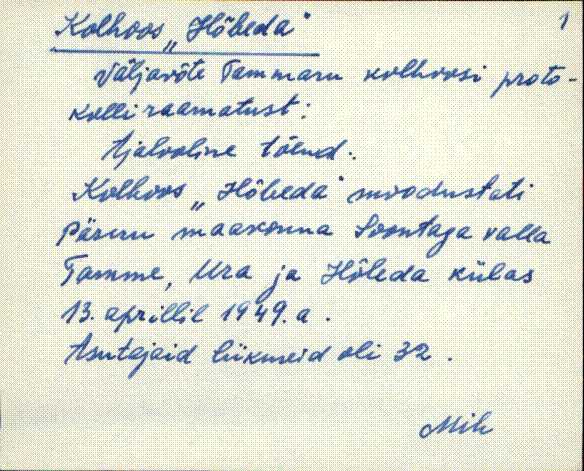 1
Kolhoos „Hõbeda"
Väljavõte Tammaru kolhoosi proto-
kolliraamatust:
Ajalooline tõend:
Kolhoos „Hõbeda" moodustati
Pärnu maakonna Soontaga valla
Tamme, Ura ja Hõbeda külas
13. aprillil 1949.a.
Asutajaid liikmeid oli 32.